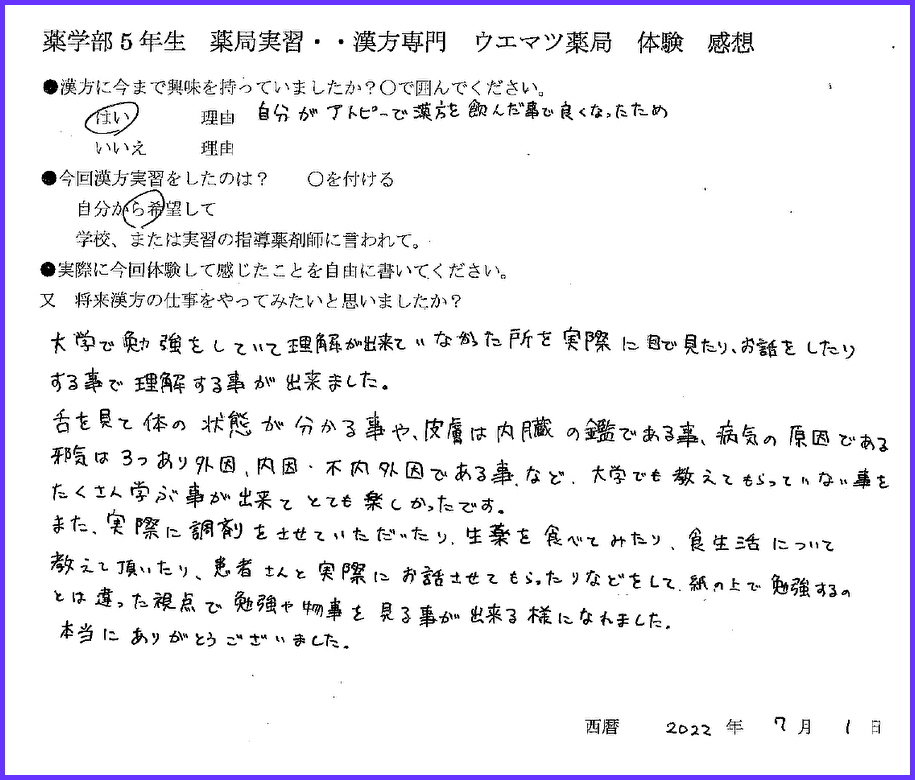 薬学部5年生　薬局実習・・漢方専門　ウエマツ薬局　体験　感想
●漢方に今まで興味を持っていましたか？○で囲んでください。
はい　理由　自分がアトピーで漢方を飲んだ事で良くなったため
いいえ　理由
●今回漢方実習をしたのは？　○を付ける
自分から希望して
学校、または実習の指導薬剤師に言われて。
●実際に今回体験して感じたことを自由に書いてください。
又　将来漢方の仕事をやってみたいと思いましたか？
大学で勉強をしていて理解が出来ていなかった所を実際に目で見たり、お話をしたり
する事で理解する事が出来ました。
舌を見て体の状態が分かる事や、皮膚は内臓の鑑である事、病気の原因である
邪気は3つあり外因、内因・不内外因である事、など、大学でも教えてもらっていない事を
たくさん学ぶ事が出来てとても楽しかったです。
また、実際に調剤をさせていただいたり、生薬を食べてみたり、食生活について
教えて頂いたり、患者さんと実際にお話させてもらったりなどをして、紙の上で勉強するの
とは違った視点で勉強や物事を見る事が出来る様になれました。
本当にありがとうございました。
西暦　2022年　7月　1日